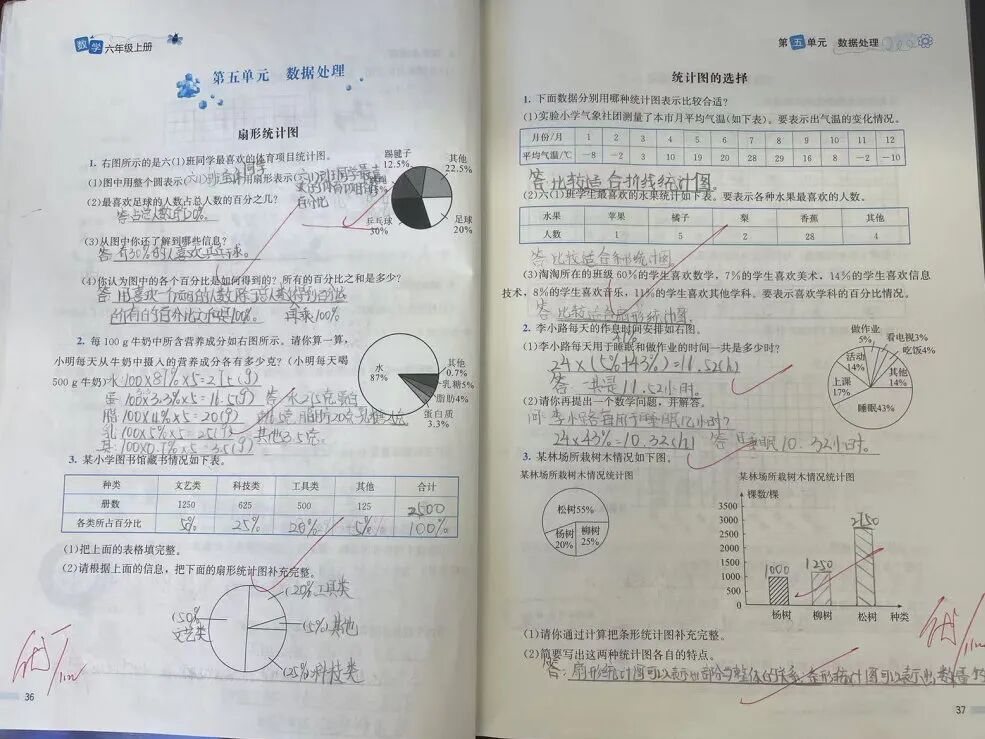 数学 六年级上册
第五单元 数据处理
扇形统计图
1. 右图所示的是六(1)班同学最喜欢的体育项目统计图。
(1)图中用整个圆表示(六(1)班全体同学),用扇形表示(六(1)班同学最喜
欢的体育项目的
百分比
(2)最喜欢足球的人数占总人数的百分之几?
答:占总人数的20%。
(3)从图中你还了解到哪些信息?
答:有30%的人喜欢乒乓球。
踢毽子
12.5%
其他
22.5%
乒乓球
30%
足球
20%
(4)你认为图中的各个百分比是如何得到的?所有的百分比之和是多少?
答:用喜欢一个项目的人数除以总人数得到百分比
所有的百分比之和是100%。 再乘100%
2. 每 100 g 牛奶中所含营养成分如右图所示。请你算一算,
小明每天从牛奶中摄入的营养成分各有多少克?(小明每天喝
500 g 牛奶)
蛋:100×3.3%×5=16.5(g)
脂:100×4%×5=20(g)
乳:100×5%×5=25(g) 其他3.5克
其:100×0.7%×5=3.5(g)
水
87%
其他
0.7%
乳糖5%
脂肪4%
蛋白质
3.3%
3. 某小学图书馆藏书情况如下表。
种类 文艺类 科技类 工具类 其他 合计
册数 1250 625 500 125 2500
各类所占百分比 50% 25% 20% 5% 100%
(1)把上面的表格填完整。
(2)请根据上面的信息,把下面的扇形统计图补充完整。
(20%)工具类
(50%)
文艺类
(5%)其他
(25%)科技类
36
第五单元 数据处理
统计图的选择
1. 下面数据分别用哪种统计图表示比较合适?
(1)实验小学气象社团测量了本市月平均气温(如下表)。要表示出气温的变化情况。
月份/月 1 2 3 4 5 6 7 8 9 10 11 12
平均气温/℃ -8 -2 3 10 19 20 28 29 16 8 -2 -10
答:比较适合折线统计图。
(2)六(1)班学生最喜欢的水果统计如下表。要表示各种水果最喜欢的人数。
水果 苹果 橘子 梨 香蕉 其他
人数 1 5 2 28 4
答:比较适合条形统计图。
(3)淘淘所在的班级 60%的学生喜欢数学,7%的学生喜欢美术,14%的学生喜欢信息
技术,8%的学生喜欢音乐,11%的学生喜欢其他学科。要表示喜欢学科的百分比情况。
答:比较适合扇形统计图。
2. 李小路每天的作息时间安排如右图。
(1)李小路每天用于睡眠和做作业的时间一共是多少时?
24×(5%+43%)=11.52(h)
答:一共是11.52小时。
(2)请你再提出一个数学问题,并解答。
问:李小路每天用于睡眠几小时?
24×43%=10.32(h) 答:睡眠10.32小时。
做作业
5%
看电视3%
吃饭4%
活动
14%
其他
14%
上课
17%
睡眠43%
3. 某林场所栽树木情况如下图。
某林场所栽树木情况统计图
松树55%
杨树
20%
柳树
25%
某林场所栽树木情况统计图
棵数/棵
3500
3000
2500
2000
1500
1000
500
0
1000
1250
2750
杨树 柳树 松树 种类
(1)请你通过计算把条形统计图补充完整。
(2)简要写出这两种统计图各自的特点。
答:扇形统计图可以表示出部分与整体的关系,条形统计图可以表示出数量
37